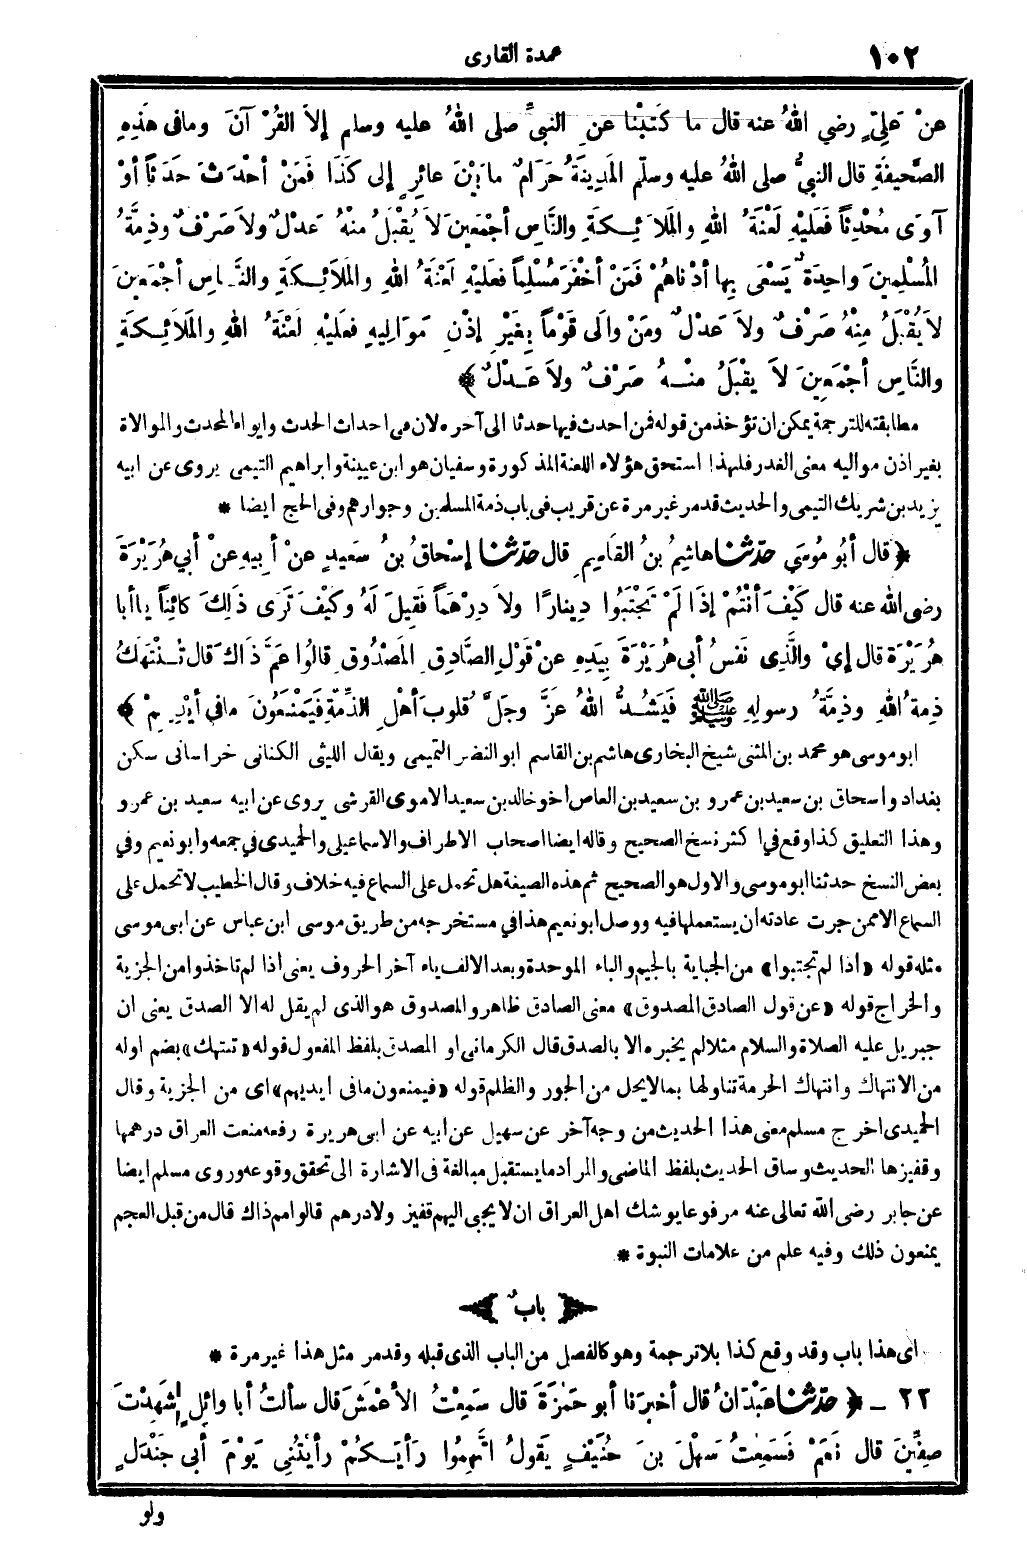 ١٠٢
عمدة القارى
عنْ عَلِيٍّ رضي اللهُ عنه قال ما كَتَبْنا عنِ النبيِّ صلى اللهُ عليه وسلم إلاَّ القُرْآنَ ومافى هَذِهِ
الصَّحيفَةِ قال النبيُّ صلى اللهُ عليه وسلّم المَدِينَةُ حَرَامٌ مابَيْنَ عائِرٍ إلى كَذَا فَمَنْ أحْدَثَ حَدَثاً أوْ
آوَى مُحْدِثاً فَعَلَيْهِ لَعْنَةُ اللهِ والمَلاَئِكَةِ والنَّاسِ أجْمَعِينَ لاَ يُقْبَلُ مِنْهُ عَدْلٌ ولاَ صَرْفٌ وذِمَّةُ
المُسْلِمِينَ واحِدَةٌ يَسْعَى بِها أدْناهُمْ فَمَنْ أخْفَرَ مُسْلِماً فعَلَيْهِ لَعْنَةُ اللهِ والمَلَائِكَةِ والنَّاسِ أجْمَعِينَ
لاَ يُقْبَلُ مِنْهُ صَرْفٌ ولاَ عَدْلٌ ومَنْ والَى قَوْماً بِغَيْرِ إذْنِ مَوَالِيهِ فعَلَيْهِ لَعْنَةُ اللهِ والمَلاَئِكَةِ
والنَّاسِ أجْمَعِينَ لاَ يقْبَلُ منْهُ صَرْفٌ ولاَ عَدْلٌ ﴾
مطابقته للترجمة يمكن ان تؤخذ من قوله فمن احدث فيها حدثا الى آخره لان فى احداث الحدث وايواء المحدث والموالاة
بغير اذن مواليه معنى الغدر فلهذا استحق هؤلاء اللعنة المذكورة وسفيان هو ابن عيينة وابراهيم التيمى يروى عن ابيه
يزيد بن شريك التيمى والحديث قد مر غير مرة عن قريب فى باب ذمة المسلمين وجوارهم وفى الحج ايضا *
﴿ قال أبُو مُوسَي حَدَّثنا هاشِمُ بنُ القَاسِمِ قال حَدَّثنا إسْحَاقُ بنُ سَعِيدٍ عنْ أبِيهِ عنْ أبي هُرَيْرَةَ
رضى الله عنه قال كَيْفَ أنْتُمْ إذَا لَمْ تَجْتَبُوا دِينارًا ولاَ دِرْهَماً فَقِيلَ لَهُ وكَيْفَ تَرَى ذَلِكَ كائِناً ياأبا
هُرَيْرَةَ قال إيْ والَّذِى نَفْسُ أبي هُرَيْرَةَ بِيَدِهِ عنْ قَوْلِ الصَّادِقِ المَصْدُوقِ قالُوا عَمَّ ذَاكَ قال تُنْتَهَكُ
ذِمةُ اللهِ وذِمَّةُ رسولِهِ ﷺ فَيَشُدُّ اللهُ عَزَّ وجَلَّ قُلوبَ أهْلِ الذِّمَّةِ فَيَمْنَعُونَ مافي أيْدِيهِمْ ﴾
ابو موسى هو محمد بن المثنى شيخ البخارى هاشم بن القاسم ابو النضر التميمى ويقال الليثى الكنانى خراسانى سكن
بغداد واسحاق بن سعيد بن عمرو بن سعيد بن العاص اخو خالد بن سعيد الاموى القرشى يروى عن ابيه سعيد بن عمرو
وهذا التعليق كذا وقع في اكثر نسخ الصحيح وقاله ايضا اصحاب الاطراف والاسماعيلى والحميدى في جمعه وابو نعيم وفي
بعض النسخ حدثنا ابو موسى والاول هو الصحيح ثم هذه الصيغة هل تحمل على السماع فيه خلاف وقال الخطيب لا تحمل على
السماع الا ممن جرت عادته ان يستعملها فيه ووصل ابو نعيم هذا في مستخرجه من طريق موسى ابن عباس عن ابى موسى
مثله قوله «اذا لم تجتبوا» من الجباية بالجيم والباء الموحدة وبعد الالف ياء آخر الحروف يعنى اذا لم تاخذوا من الجزية
والخراج قوله «عن قول الصادق المصدوق» معنى الصادق ظاهر والمصدوق هو الذى لم يقل له الا الصدق يعنى ان
جبريل عليه الصلاة والسلام مثلا لم يخبره الا بالصدق قال الكرمانى او المصدق بلفظ المفعول قوله «تنتهك» بضم اوله
من الانتهاك وانتهاك الحرمة تناولها بما لا يحل من الجور والظلم قوله «فيمنعون مافى ايديهم» اى من الجزية وقال
الحميدى اخرج مسلم معنى هذا الحديث من وجه آخر عن سهيل عن ابيه عن ابى هريرة رفعه منعت العراق درهمها
وقفيزها الحديث وساق الحديث بلفظ الماضى والمراد ما يستقبل مبالغة فى الاشارة الى تحقق وقوعه وروى مسلم ايضا
عن جابر رضى الله تعالى عنه مرفوعا يوشك اهل العراق ان لا يجبى اليهم قفيز ولا درهم قالوا مم ذاك قال من قبل العجم
يمنعون ذلك وفيه علم من علامات النبوة *
﴿ بابٌ ﴾
اى هذا باب وقد وقع كذا بلا ترجمة وهو كالفصل من الباب الذى قبله وقد مر مثل هذا غير مرة *
٢٢ ـ ﴿ حَدَّثنا عَبْدَانُ قال أخبرَنا أبو حَمْزَةَ قال سَمِعْتُ الأعْمَشَ قال سألتُ أبا وائِلٍ إشَهِدْتَ
صِفِّينَ قال نَعَمْ فَسَمِعْتُ سَهْلَ بنَ حُنَيْفٍ يَقولُ اتَّهِمُوا رَأيَكُمْ رأيْتُنِى يَوْمَ أبى جَنْدَلٍ
ولو